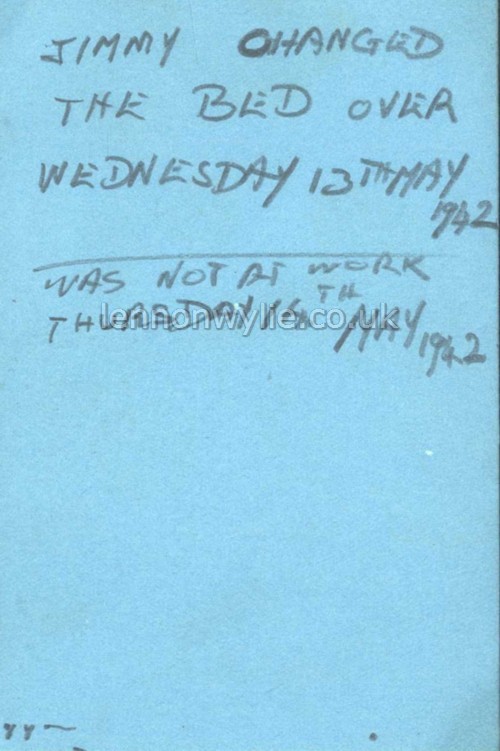 JIMMY CHANGED
THE BED OVER
WEDNESDAY 13TH MAY
1942
WAS NOT AT WORK
THURSDAY 14TH MAY 1942
lennonwylie.co.uk